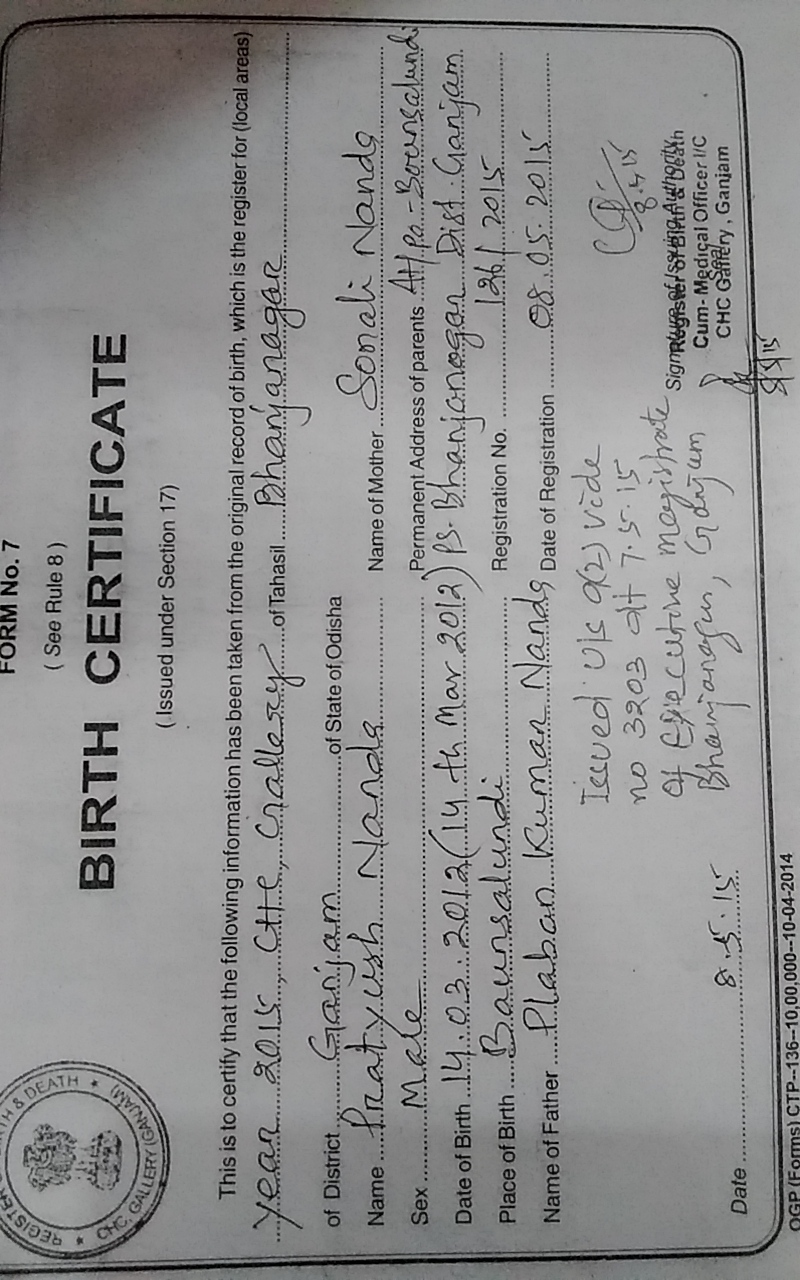 FORM No. 7
( See Rule 8 )
BIRTH CERTIFICATE
( Issued under Section 17)
This is to certify that the following information has been taken from the original record of birth, which is the register for (local areas)
year 2015, CHC, Gallery of Tahasil Bhanjanagar
of District Ganjam of State of Odisha
Name Pratyush Nanda Name of Mother Sonali Nanda
Sex Male Permanent Address of parents At/Po-Baunsalundi
Date of Birth 14.03.2012(14th Mar 2012) PS. Bhanjanagar Dist. Ganjam
Place of Birth Baunsalundi Registration No. 126/2015
Name of Father Plaban Kumar Nanda Date of Registration 08.05.2015
Issued u/s 9(2) vide
no 3203 dt 7.5.15
of Executive Magistrate
Bhanjanagar, Ganjam
8.5.15
Signature of Issuing Authority
Registrar of Birth & Death
Cum- Medical Officer I/C
Seal
CHC Gallery, Ganjam
8/5/15
Date 8.5.15
OGP (Forms) CTP--136--10,00,000--10-04-2014
REGISTER BIRTH & DEATH
CHC. GALLERY (GANJAM)